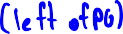 (left of PG)